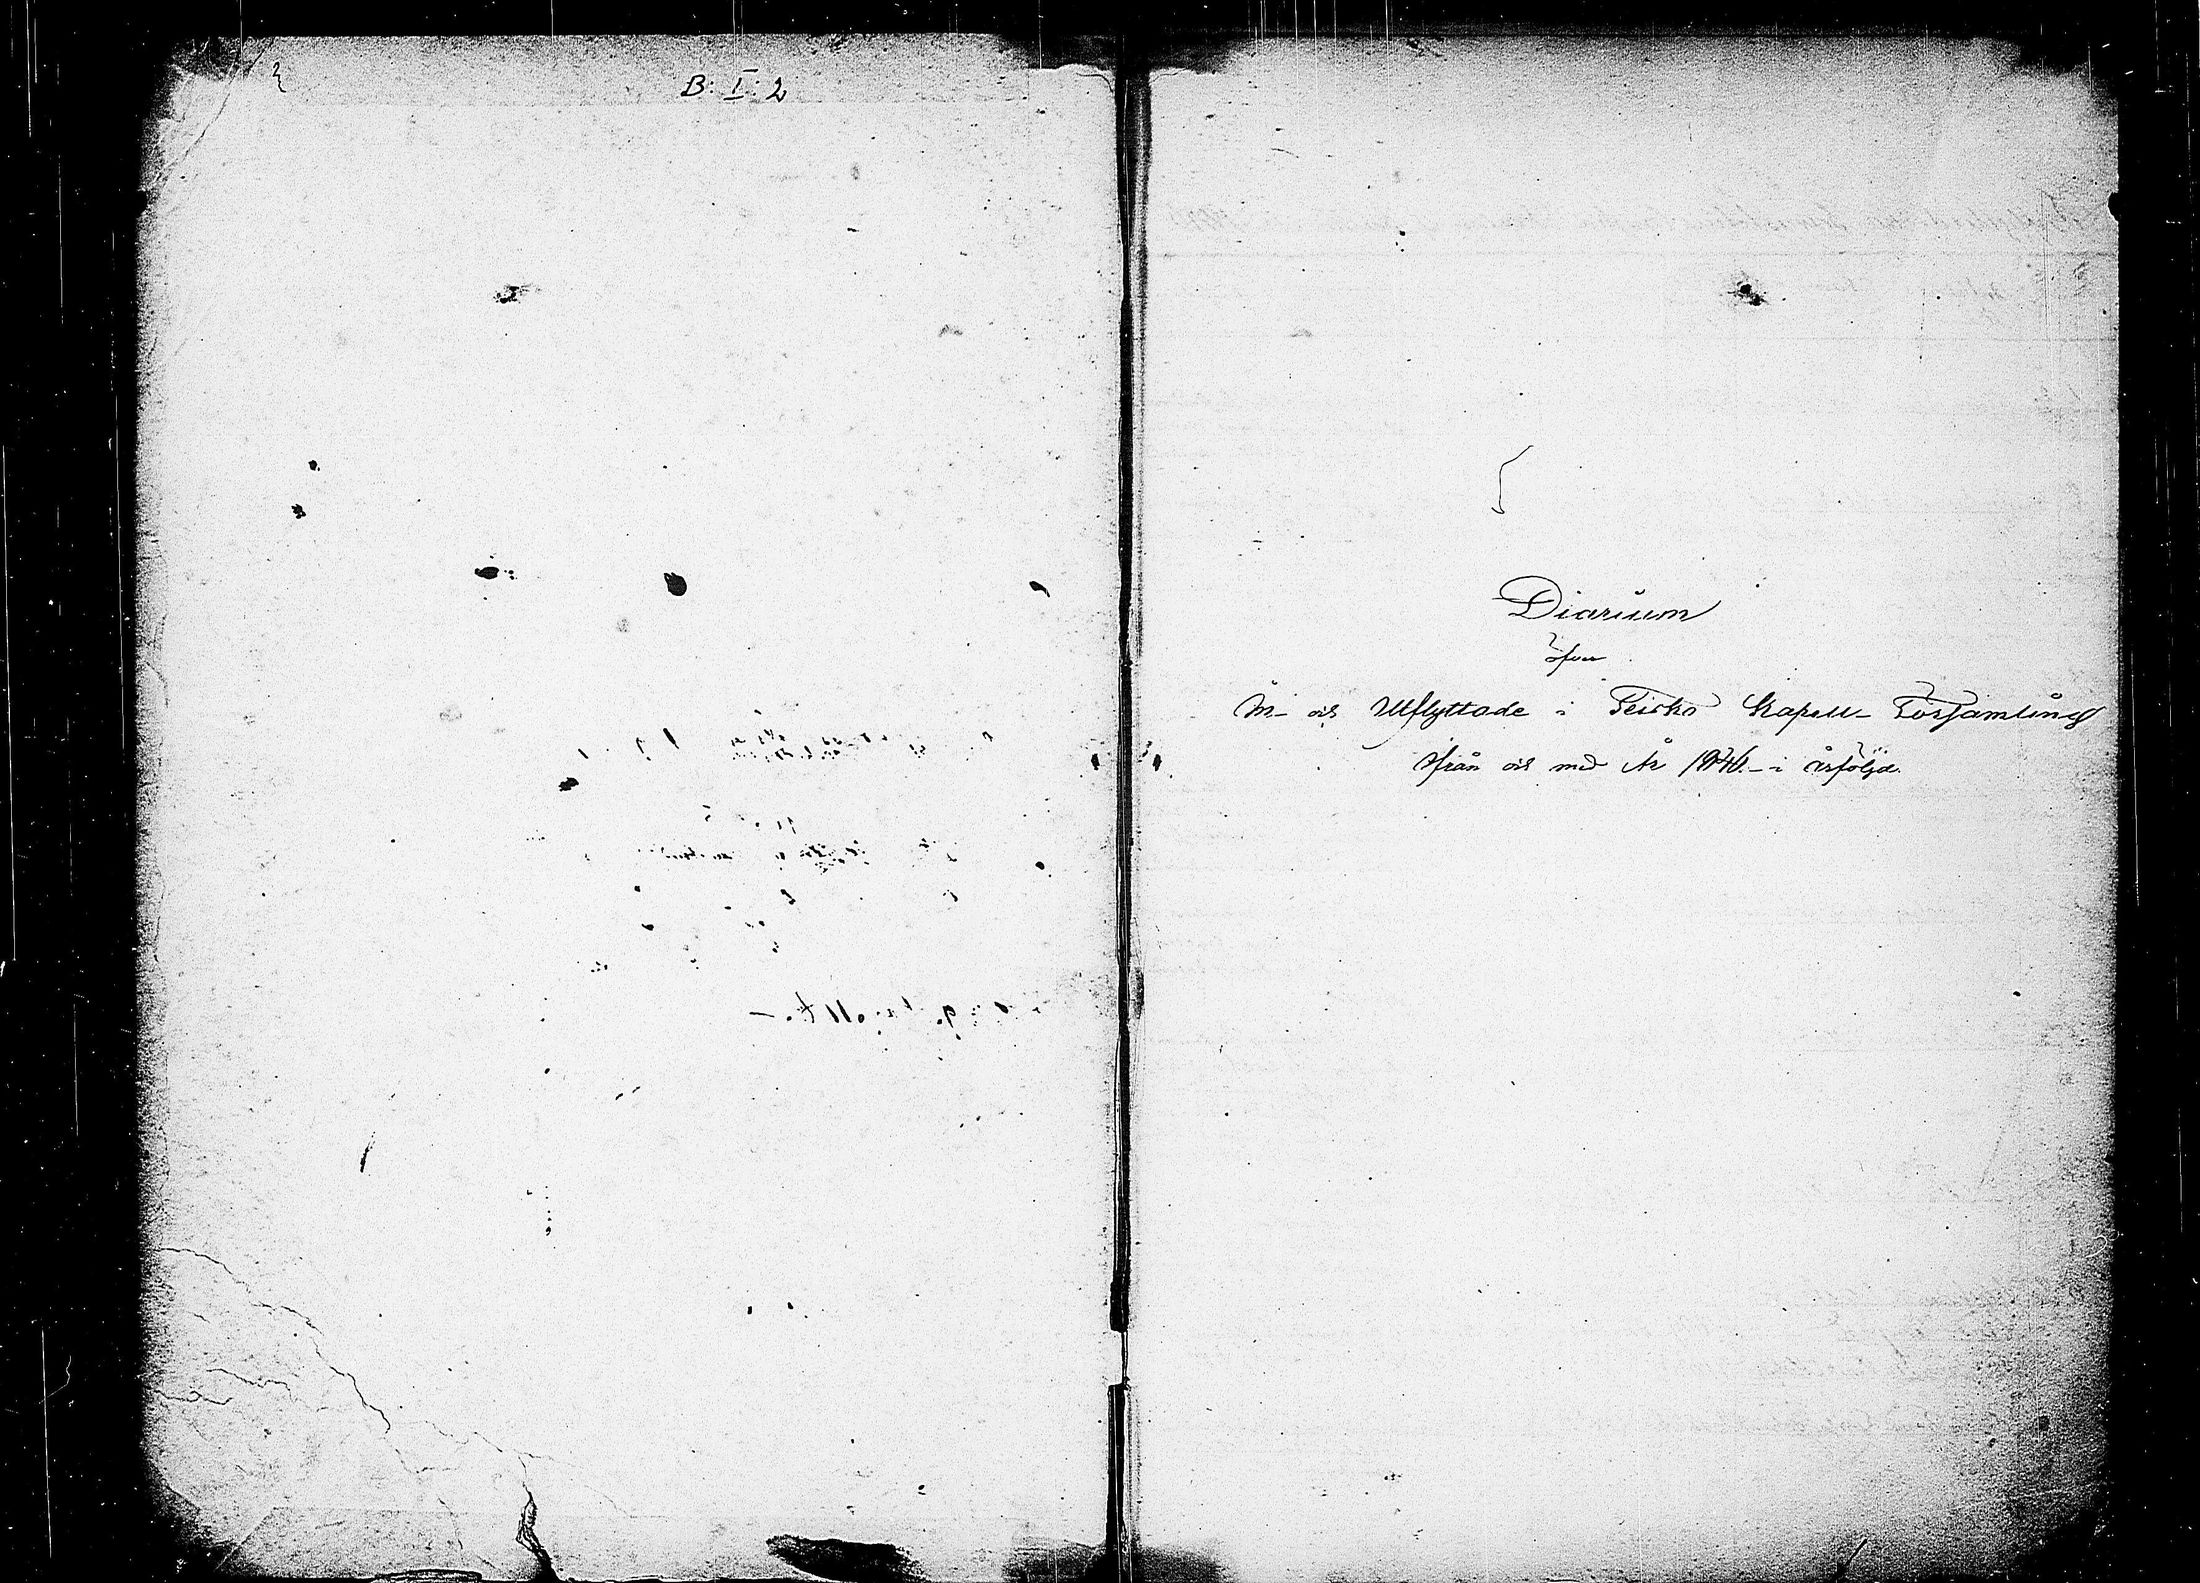 B: I: 2
Diarium
öfver
In- och Utflyttade i Teisko Kapell- Församling
ifrån och med År 1846.- i årsföljd.